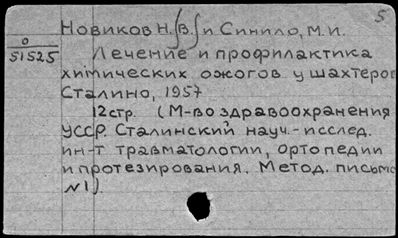 5
Новиков Н.[В.] и Синило, М.И.
0
51525
Лечение и профилактика
химических ожогов у шахтеров
Сталино, 1957
12 стр. (М-во здравоохранения
УССР. Сталинский науч.-исслед.
ин-т травматологии, ортопедии
и протезирования. Метод. письмо
№1).